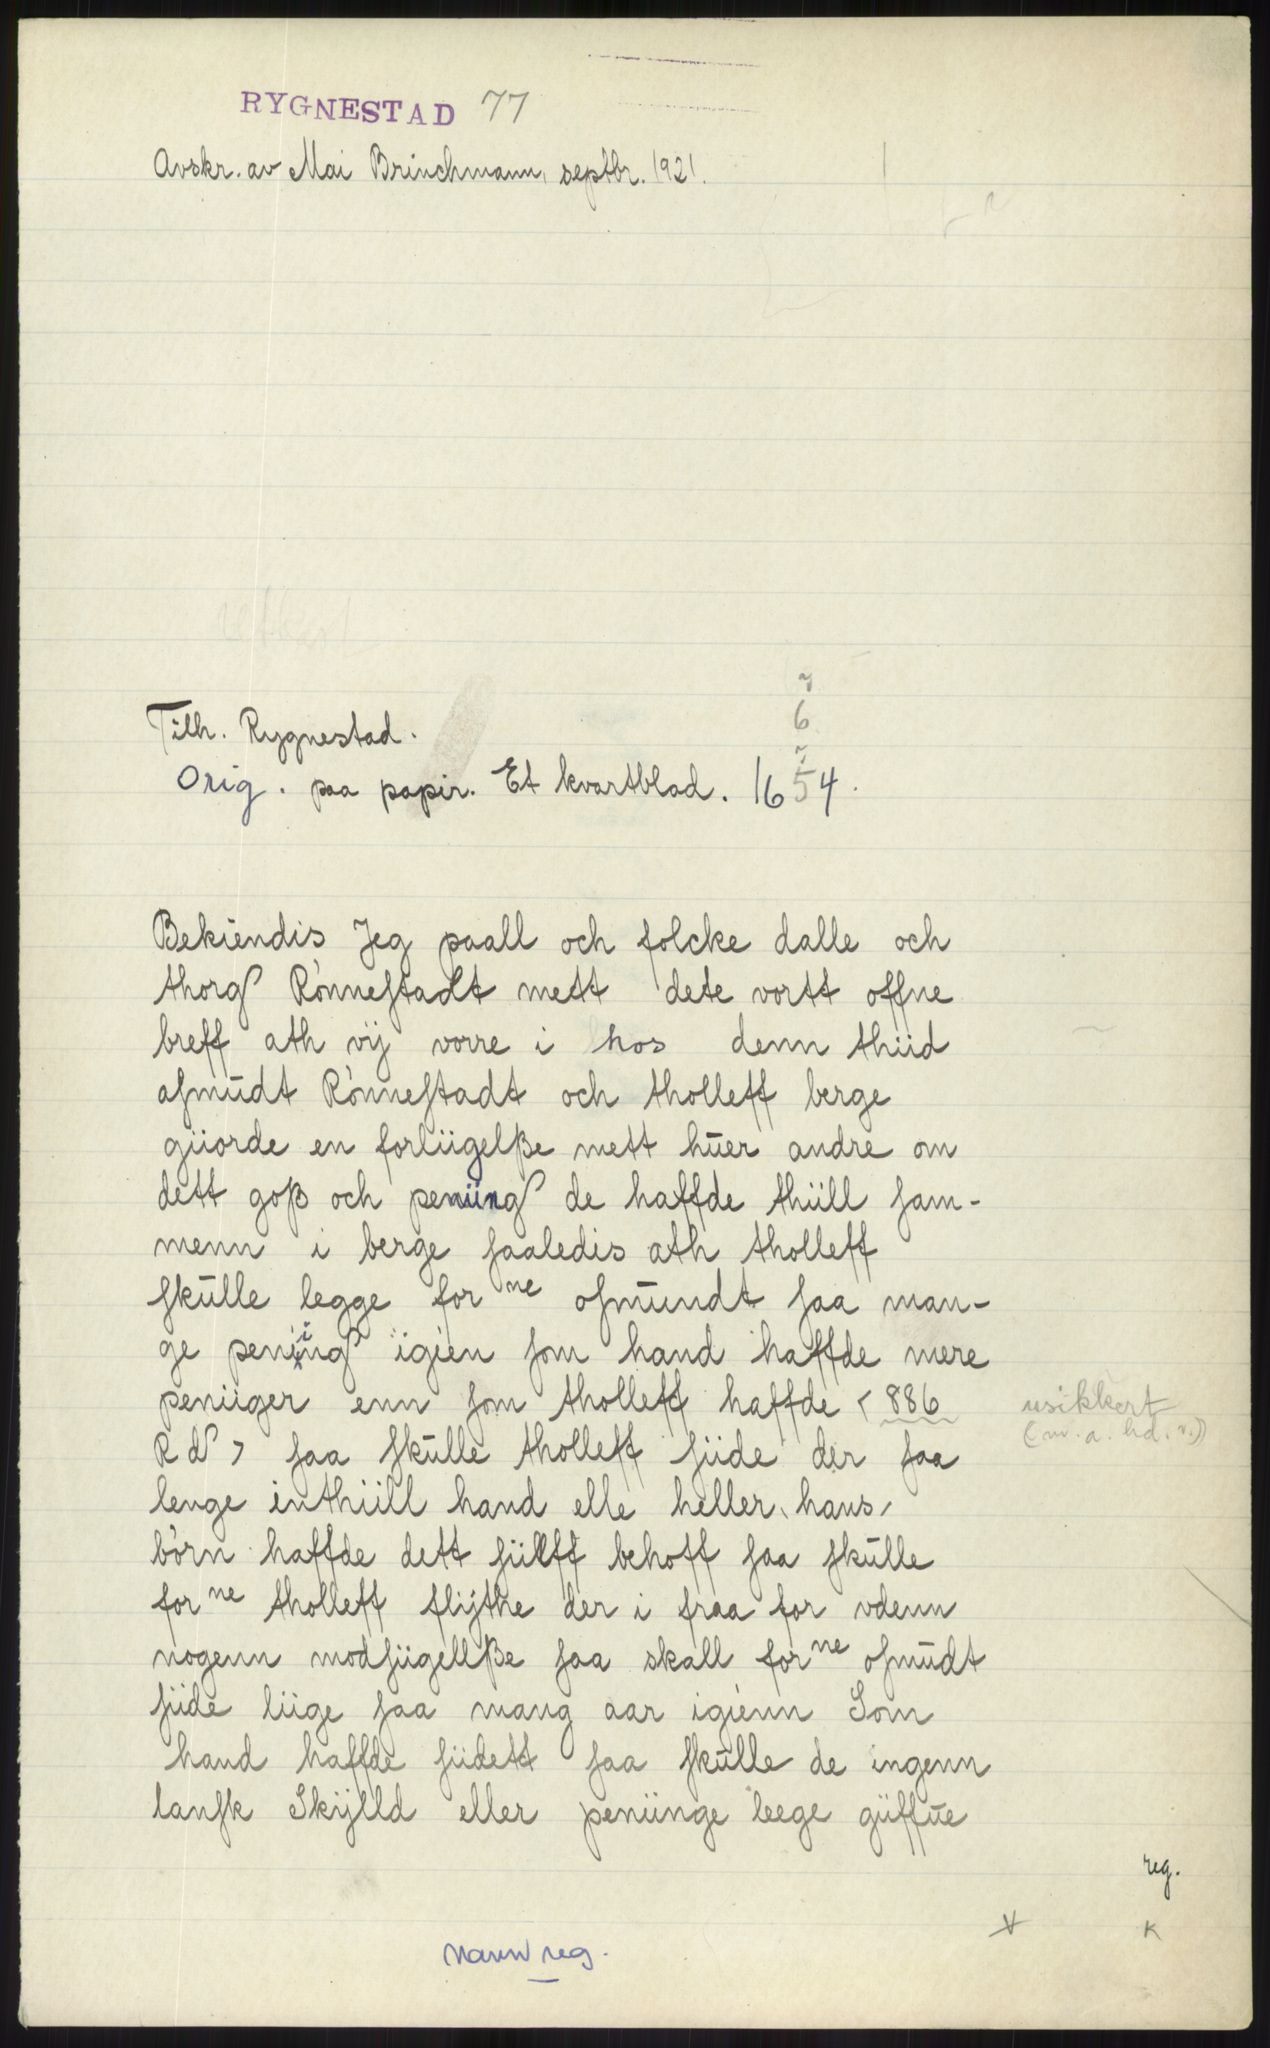 RYGNESTAD 77
Avskr. av Mai Brinchmann, septbr. 1921.
Tilh. Rygnestad.
6
Orig. paa papir. Et kvartblad. 1654.
Bekiendis Jeg paall och folcke dalle och
thorg Rònneſtadt mett dete vortt offne
breff ath vÿ vorre i hos denn thiid
aſmŭdt Rònneſtadt och tholleff berge
giorde en forliigelße mett hŭer andre om
dett goß och peniing de haffde thiill ſam-
menn i berge ſaaledis ath tholleff
ſkŭlle legge for ne oſmŭndt ſaa man-
ge pening igien ſom hand haffde mere
peniiger enn ſom tholleff haffde < 886
R d > ſaa ſkŭlle tholleff ſiide der ſaa
lenge inthiill hand elle heller hans
bòrn haffde dett ſiilff behoff ſaa ſkŭlle
for ne tholleff flÿthe der i fraa for vdenn
nogenn modſiigellße ſaa skall for ne oſmŭdt
ſiide liige ſaa mang aar igienn Som
hand haffde ſiidett ſaa ſkŭlle de ingenn
lanſk Skÿlld eller peniinge leege giiffŭe
usikkert
(m. a. hd. n.)
reg.
K
navnreg.